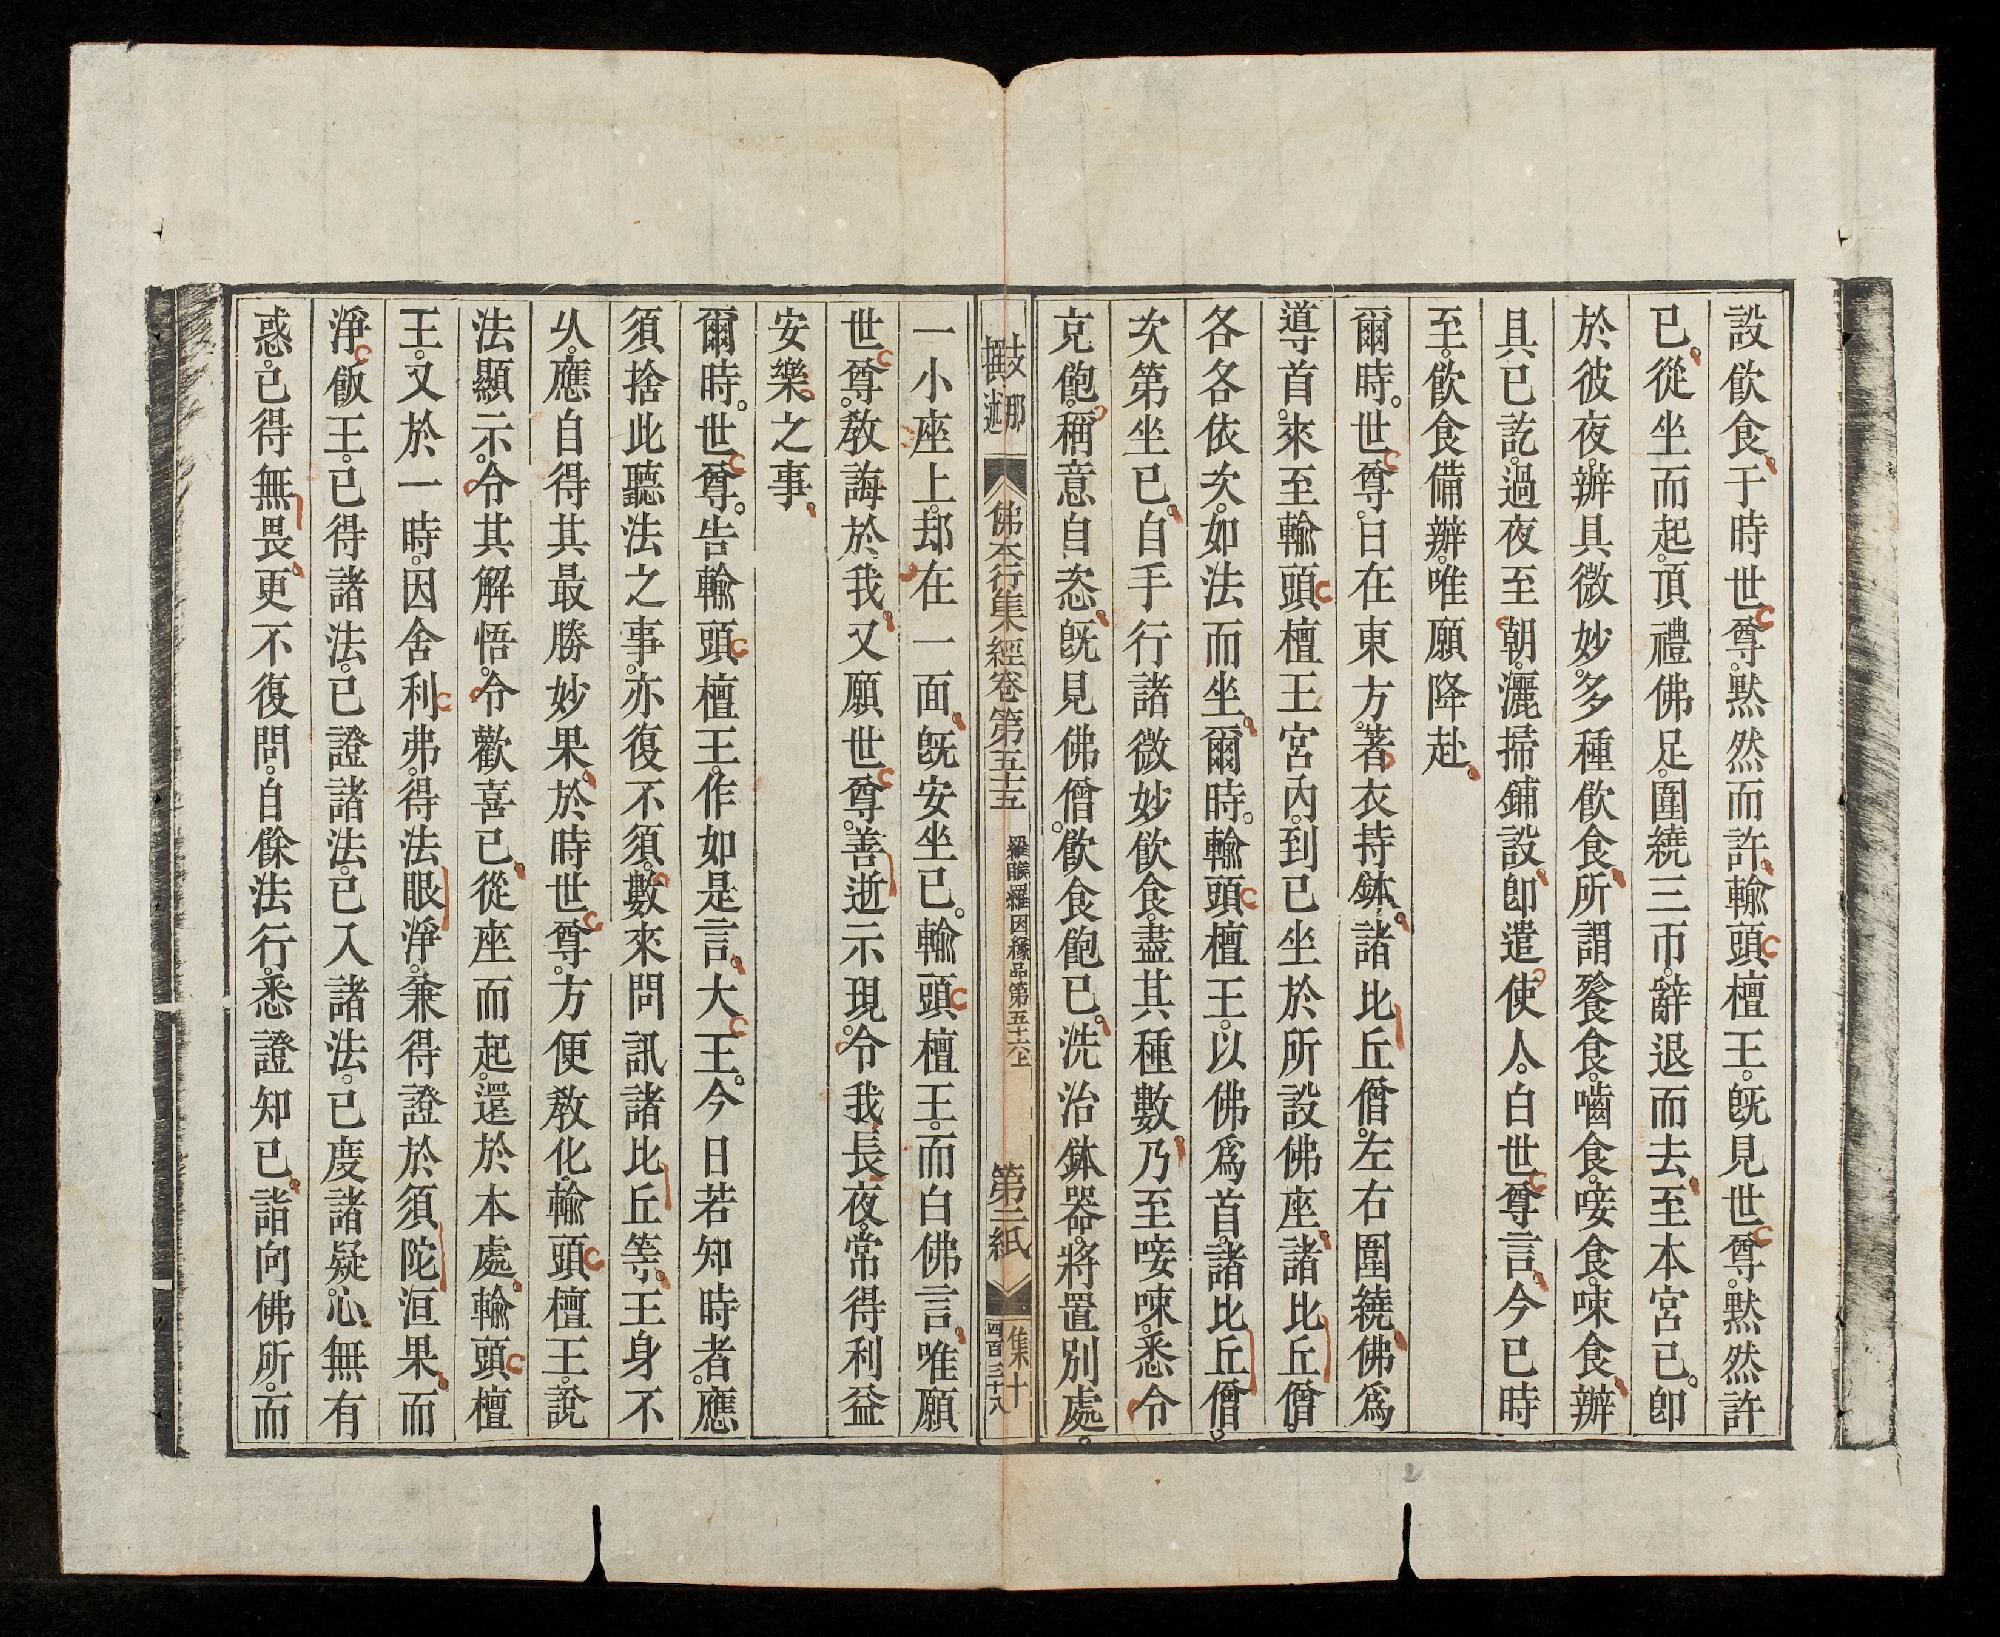 設飲食。于時世尊。默然而許。輸頭檀王。既見世尊。默然許
已。從坐而起。頂禮佛足。圍繞三帀。辭退而去。至本宮已。卽
於彼夜。辦具微妙。多種飲食。所謂餐食。嚙食。唼食。㖨食。辦
具已訖。過夜至朝。灑掃鋪設。卽遣使人。白世尊言。今已時
至。飲食備辦。唯願降赴。
爾時。世尊。日在東方。著衣持鉢。諸比丘僧。左右圍繞。佛爲
導首。來至輸頭檀王宮內。到已坐於所設佛座。諸比丘僧。
各各依次。如法而坐。爾時。輸頭檀王。以佛爲首。諸比丘僧。
次第坐已。自手行諸微妙飲食。盡其種數。乃至唼㖨。悉令
克飽。稱意自恣。既見佛僧。飲食飽已。洗治鉢器。將置別處。
支那
撰述
佛本行集經卷第五十五
羅睺羅因緣品第五十六上
第三紙
集十
四百三十八
一小座上。却在一面。既安坐已。輸頭檀王。而白佛言。唯願
世尊。敎誨於我。又願世尊。善逝示現。令我長夜。常得利益
安樂之事。
爾時。世尊。告輸頭檀王。作如是言。大王。今日若知時者。應
須捨此聽法之事。亦復不須。數來問訊諸比丘等。王身不
久。應自得其最勝妙果。於時世尊。方便敎化。輸頭檀王。說
法顯示。令其解悟。令歡喜已。從座而起。還於本處。輸頭檀
王。又於一時。因舍利弗。得法眼淨。兼得證於須陀洹果。而
淨飯王。已得諸法。已證諸法。已入諸法。已度諸疑。心無有
惑。已得無畏。更不復問。自餘法行。悉證知已。詣向佛所。而